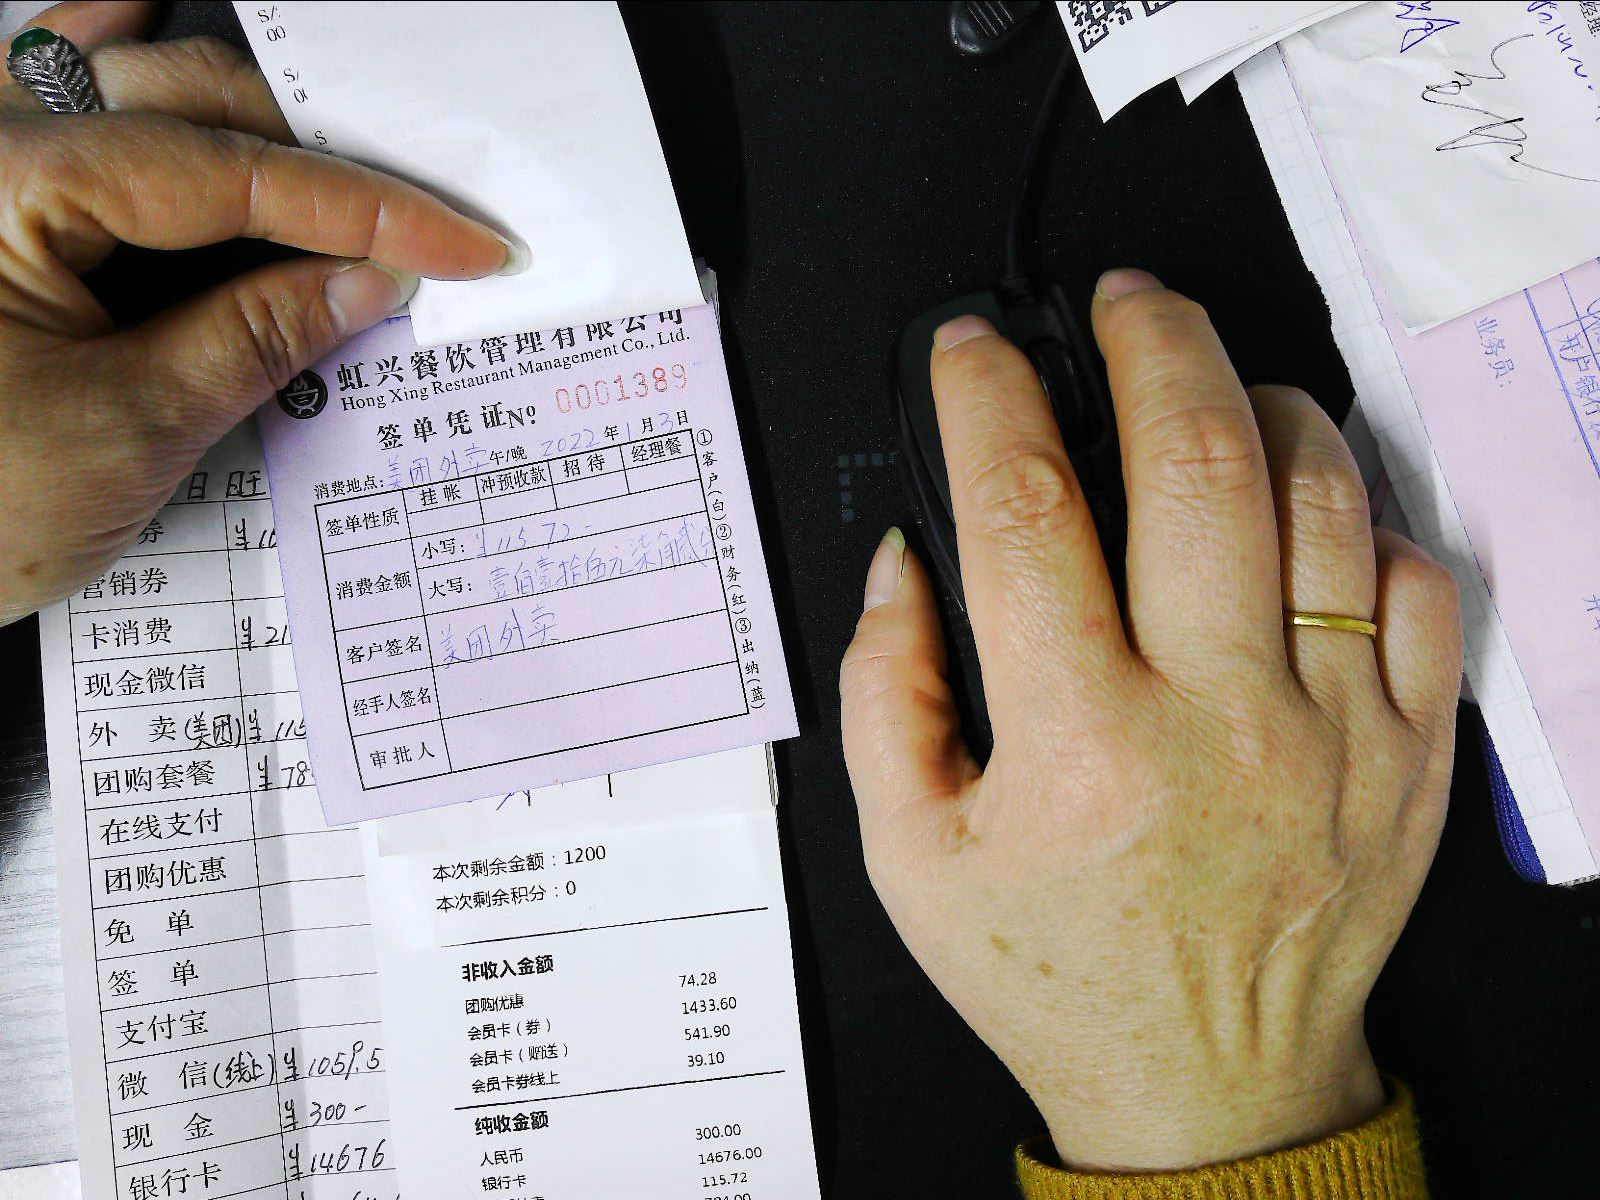 S/:
00
S/
虹兴餐饮管理有限公司
Hong Xing Restaurant Management Co., Ltd.
签单凭证№: 0001389
消费地点: 美团外卖 午/晚 2022年1月3日
签单性质 挂帐 冲预收款 招待 经理餐
消费金额 小写: ¥115.72-
大写: 壹佰壹拾伍元柒角贰分
客户签名 美团外卖
经手人签名
审批人
①客户(白)②财务(红)③出纳(蓝)
营销券
卡消费 ¥21
现金微信
外卖(美团) ¥115
团购套餐 ¥78
在线支付
团购优惠
免单
签单
支付宝
微信(线上) ¥1059.5
现金 ¥300-
银行卡 ¥14676
本次剩余金额：1200
本次剩余积分：0
非收入金额
团购优惠 74.28
会员卡（券） 1433.60
会员卡（赠送） 541.90
会员卡券线上 39.10
纯收金额
人民币 300.00
银行卡 14676.00
115.72
经理
业务员:
开户银行